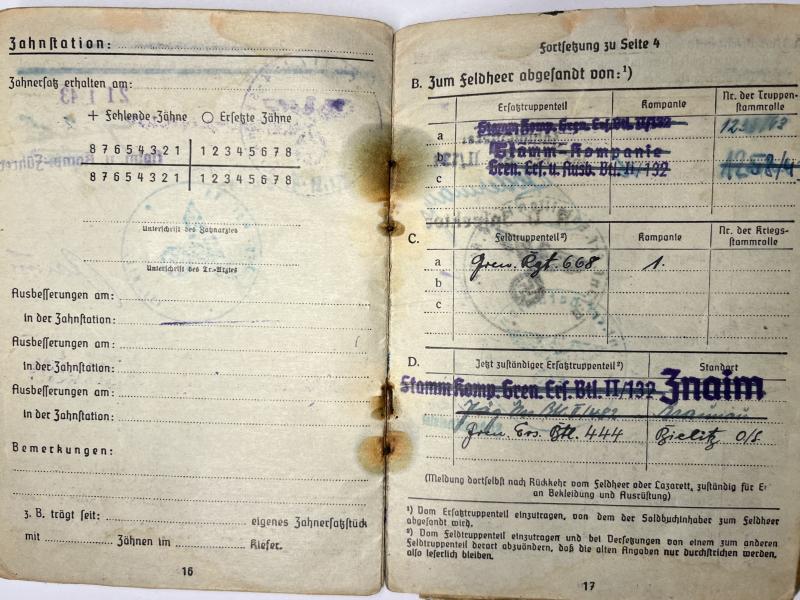 Zahnstation:
Zahnersatz erhalten am:
+ Fehlende Zähne ○ Ersetzte Zähne
8 7 6 5 4 3 2 1 | 1 2 3 4 5 6 7 8
8 7 6 5 4 3 2 1 | 1 2 3 4 5 6 7 8
Unterschrift des Zahnarztes
Unterschrift des Tr.-Arztes
Ausbesserungen am:
in der Zahnstation:
Ausbesserungen am:
in der Zahnstation:
Ausbesserungen am:
in der Zahnstation:
Bemerkungen:
z. B. trägt seit: eigenes Zahnersatzstück
mit Zähnen im Kiefer.
16
Fortsetzung zu Seite 4
B. Zum Feldheer abgesandt von:¹)
Ersatztruppenteil Kompanie Nr. der Truppenstammrolle
a Stamm Komp. Gren. Ers. Btl. II/132
b Stamm-Kompanie
c Gren. Ers. u. Ausb. Btl. II/132
C. Feldtruppenteil²) Kompanie Nr. der Kriegsstammrolle
a Gren. Rgt. 668 1.
b
c
D. Jetzt zuständiger Ersatztruppenteil²) Standort
Stamm Komp. Gren. Ers. Btl. II/132 Znaim
Gren. Ers. Btl. 444 Bielitz O/S
(Meldung dortselbst nach Rückkehr vom Feldheer oder Lazarett, zuständig für
an Bekleidung und Ausrüstung)
¹) Vom Ersatztruppenteil einzutragen, von dem der Soldbuchinhaber zum Feldheer
abgesandt wird.
²) Vom Feldtruppenteil einzutragen und bei Versetzungen von einem zum anderen
Feldtruppenteil derart abzuändern, daß die alten Angaben nur durchstrichen werden,
also leserlich bleiben.
17